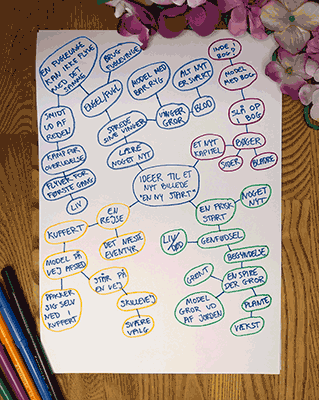 EN FUGLEUNGE
KAN IKKE FLYVE
MED DET
SAMME
BRUG
FUGLEVINGE
SMIDT
UD AF
REDEN
ENGEL/FUGL
KAMP FOR
OVERLEVELSE
SPREDE
SINE VINGER
FLYVER FOR
FØRSTE GANG
LÆRE
NOGET NYT
LIV
MODEL MED
BAR RYG
ALT NYT
ER SVÆRT
VINGER
GROR
BLOD
INDE I
BOG?
MODEL
MED BOG
SLÅ OP
BOG
BØGER
ET NYT
KAPITEL
SIDER
BLANKE
IDEER TIL ET
NYT BILLEDE
"EN NY START"
EN
REJSE
KUFFERT
DET NÆSTE
EVENTYR
MODEL PÅ
VEJ AFSTED
STÅR PÅ
EN VEJ
PAKKER
SIG SELV
NED I
KUFFERT
SKILLEVEJ
SVÆRE
VALG
EN FRISK
START
NOGET
NYT
LIV/
DØD
GENFØDSEL
BEGYNDELSE
GRØNT
EN SPIRE
DER GROR
MODEL
GROR UD
AF JORDEN
PLANTE
VÆKST